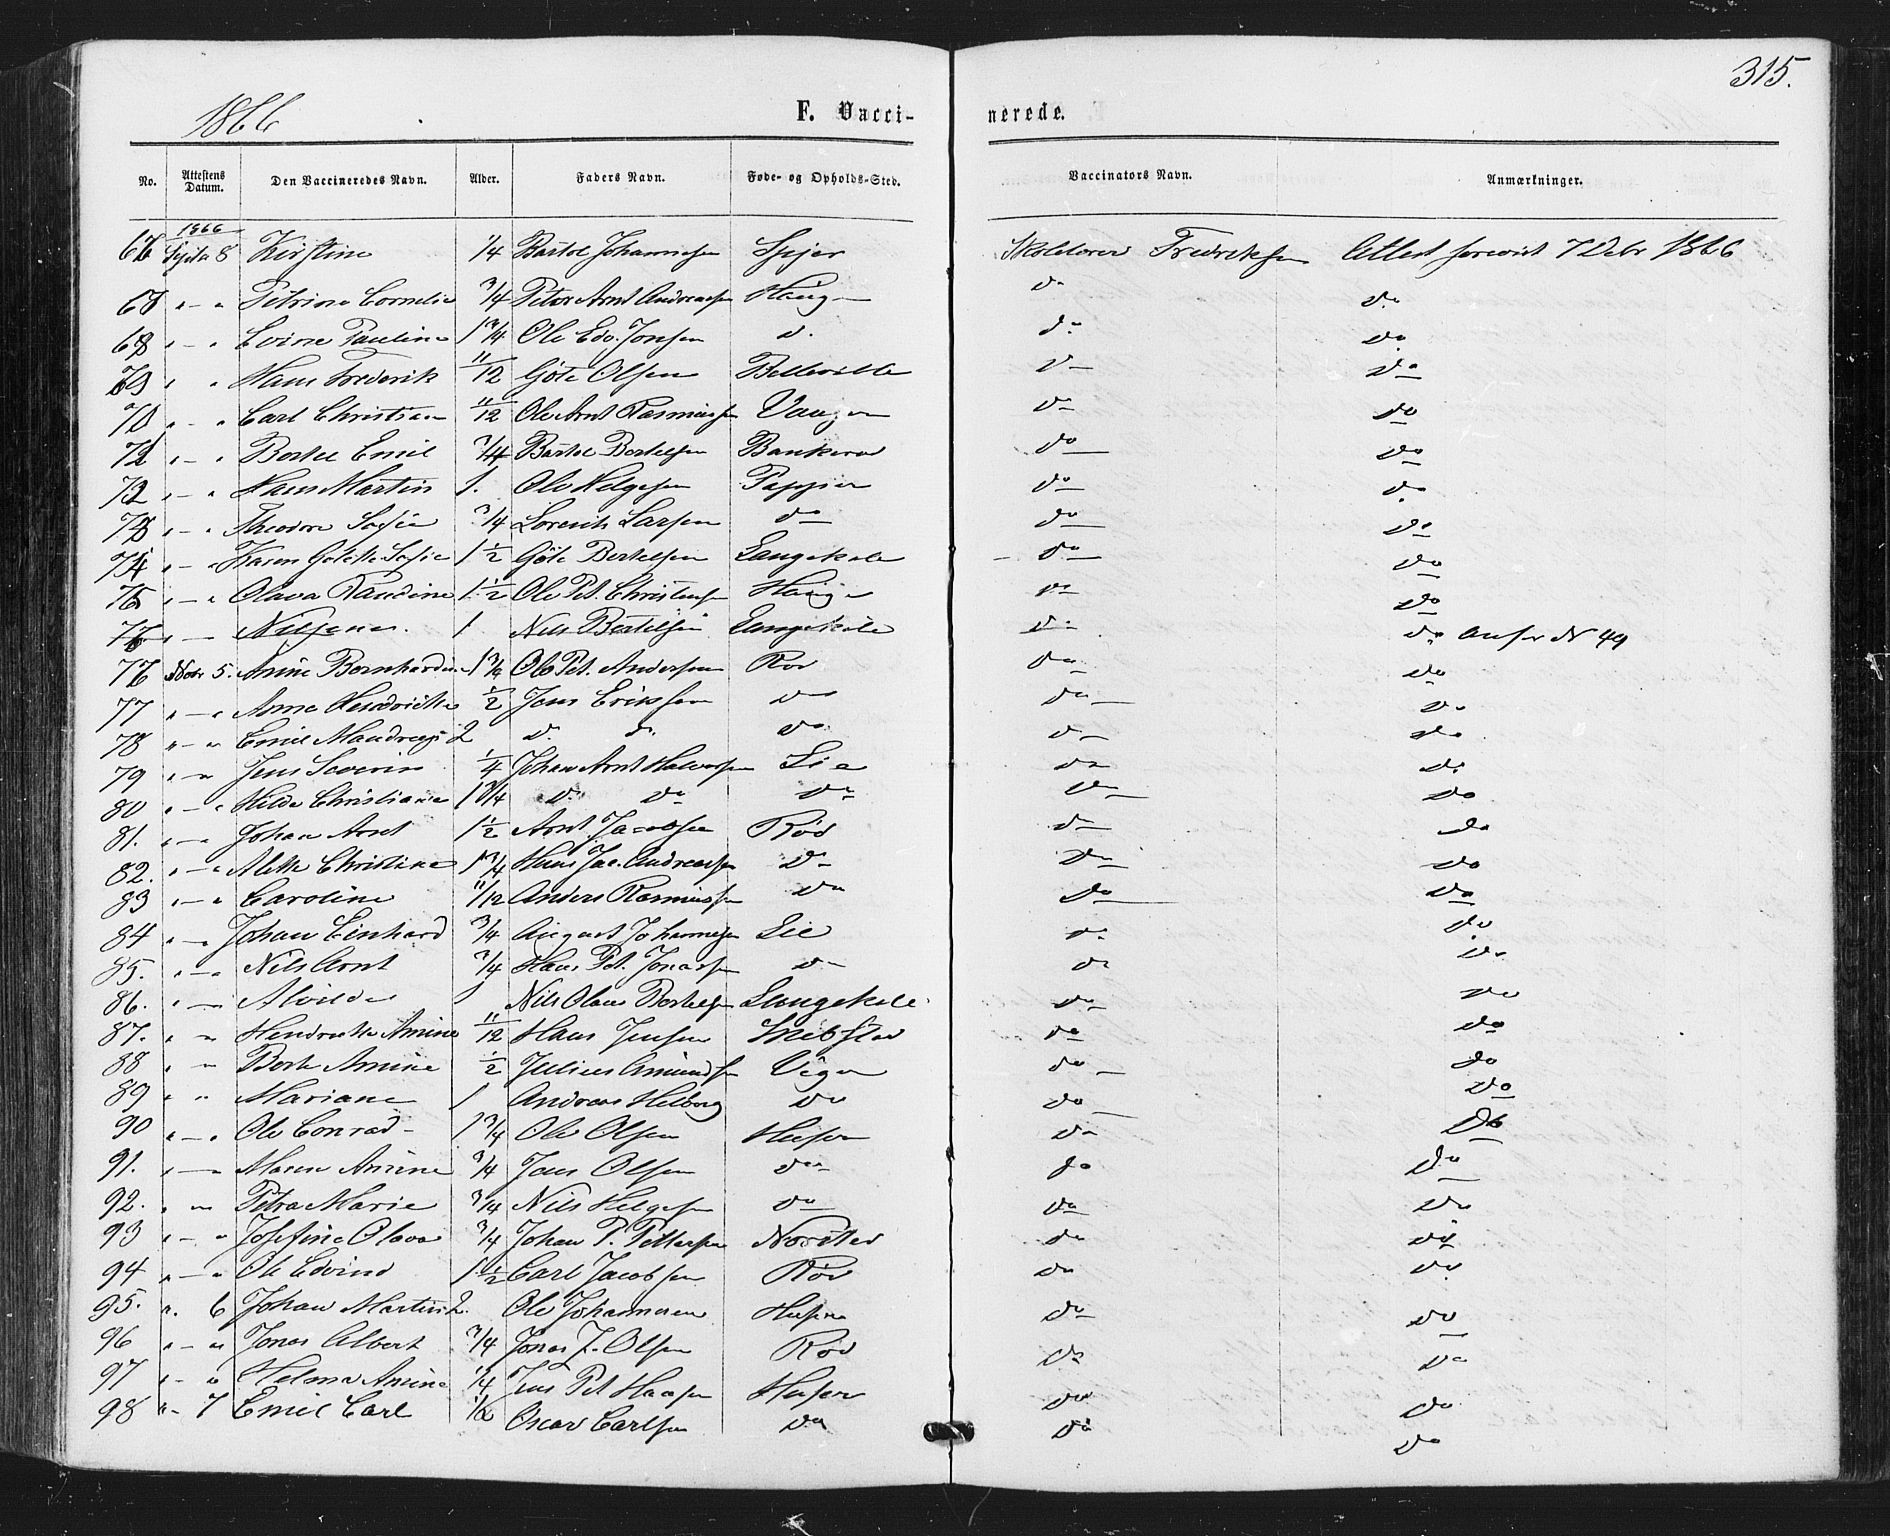 315.
1866
F. Vacci- nerede.
No. Attestens Datum. Den Vaccineredes Navn. Alder. Faders Navn. Føde- og Opholds-Sted. Vaccinators Navn. Anmærkninger.
1866
8 Kirstine 1/4 Bartol Johannesen Spjær Skolelærer Fredriksen Attest 7 Debr 1866
" — " Petrine Cornelia 3/4 Peter Arnt Andreasen Hauge do do
" — " Pauline 1 3/4 Ole Edv. Jonsen do do do
" " Hans Frederik 11/12 Göte Olsen Belleville do do
" — " Carl Christian 11/12 Ole Arnt Rasmussen Vauger do do
" — " Bertel Emil 3/4 Bartol Bertelsen Bankerød do do
" — " Hans Martin 1. Ole Helgesen Papper do do
" — " Theodore Sofie 3/4 Lorents Larsen do do do
" — " Karen Sofie 1 1/2 Göte Bertelsen Langekile do do
75 " — " Olava 1 1/2 Ole Pet. Christensen Hauge do do
76 " — Nilsine 1 Nils Bertelsen Langekile do do N 49
Novbr 5. Anine Bernhardine 1 3/4 Ole Pet. Andersen Rød do do
77 " — " Anne Hendrikke 1/2 Jens Eriksen do do do
78 " — " Emil 2 do do do do do
79 " — " Jens Severin 1/4 Johan Arnt Halvorsen Lie do do
80 " — " Hilda Christiane 1 3/4 do do do do do
81. " — " Johan Arnt 1 1/2 Arnt Jacobsen Rød do do
82. " — " Alette Christine 1 3/4 Hans Jac. Andreassen do do do
83 " — " Caroline 11/12 Anders Rasmussen do do do
84 " — " Johan Einhard 3/4 August Johannesen Lie do do
85. " — " Nils Arnt 3/4 Hans Pet. Jonassen do do do
86. " — Alvilde 1 Nils Olaus Bertelsen Langekile do do
87. " " Hendrikke Amine 11/12 Hans Jensen Skibstad do do
88 " " Berte Amine 1/2 Julius Amundsen Viger do do
89 " " Mariane 1 Andreas Helberg do do do
90 " — " Ole Conrad 1 3/4 Ole Olsen Huser do do
91. " — Maren Amine 3/4 Jens Olsen do do do
92. " — Petra Marie 3/4 Nils Helgesen do do do
93 " — " Josefine Olava 3/4 Johan P. Pettersen Norsted do do
94 " — " Ole Edvind 1 1/2 Carl Jacobsen Rød do do
95. " 6 Johan Martin 2. Ole Johannesen Huser do do
96 " — " Jonas Albert 3/4 Jonas J. Olsen Rød do do
97 " — " Helma Amine 1/4 Jens Pet Hansen Huser do do
98 " — 7 Emil Carl 1/2 Oscar Carlsen do do do